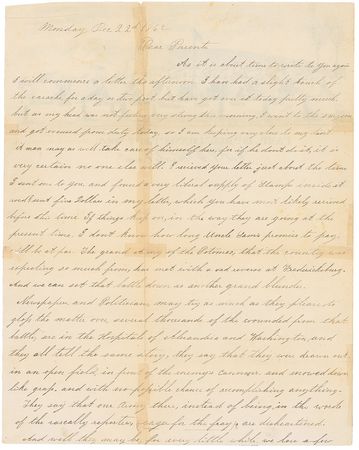 Monday Dec 22nd 1862
Dear Parents
As it is about time to write to you again
I will commence a letter this afternoon I have had a slight touch of
the earache for a day or two past but have got over it today pretty much
but as my head was not feeling very strong this morning I went to the surgeon
and got excused from duty today, so I am keeping very close to my tent
A man may as well take care of himself here, for if he don't do it, it is
very certain no one else will. I received your letter just about the time
I sent one to you and found a very liberal supply of Stamps inside it
and sent five Dollars in my letter, which you have most likely received
before this time. If things keep on, in the way they are going at the
present time, I don't know how long Uncle Sam's promise to pay
will be at par. The grand army of the Potomac, that the country was
expecting so much from, has met with a sad reverse at Fredericksburg.
And we can set that battle down as another grand blunder.
Newspaper and Politicians may try as much as they please to
gloss the matter over several thousands of the wounded from that
battle, are in the Hospitals of Alexandria and Washington, and
they all tell the same story, they say that they were drawn out
in an open field, in front of the enemys Cannon, and mowed down
like grass, and with no possible chance of accomplishing anything.
They say that our Army there, instead of being, in the words
of the rascally reporters, eager for the fray, are disheartened.
And well they may be, for every little while we lose a few